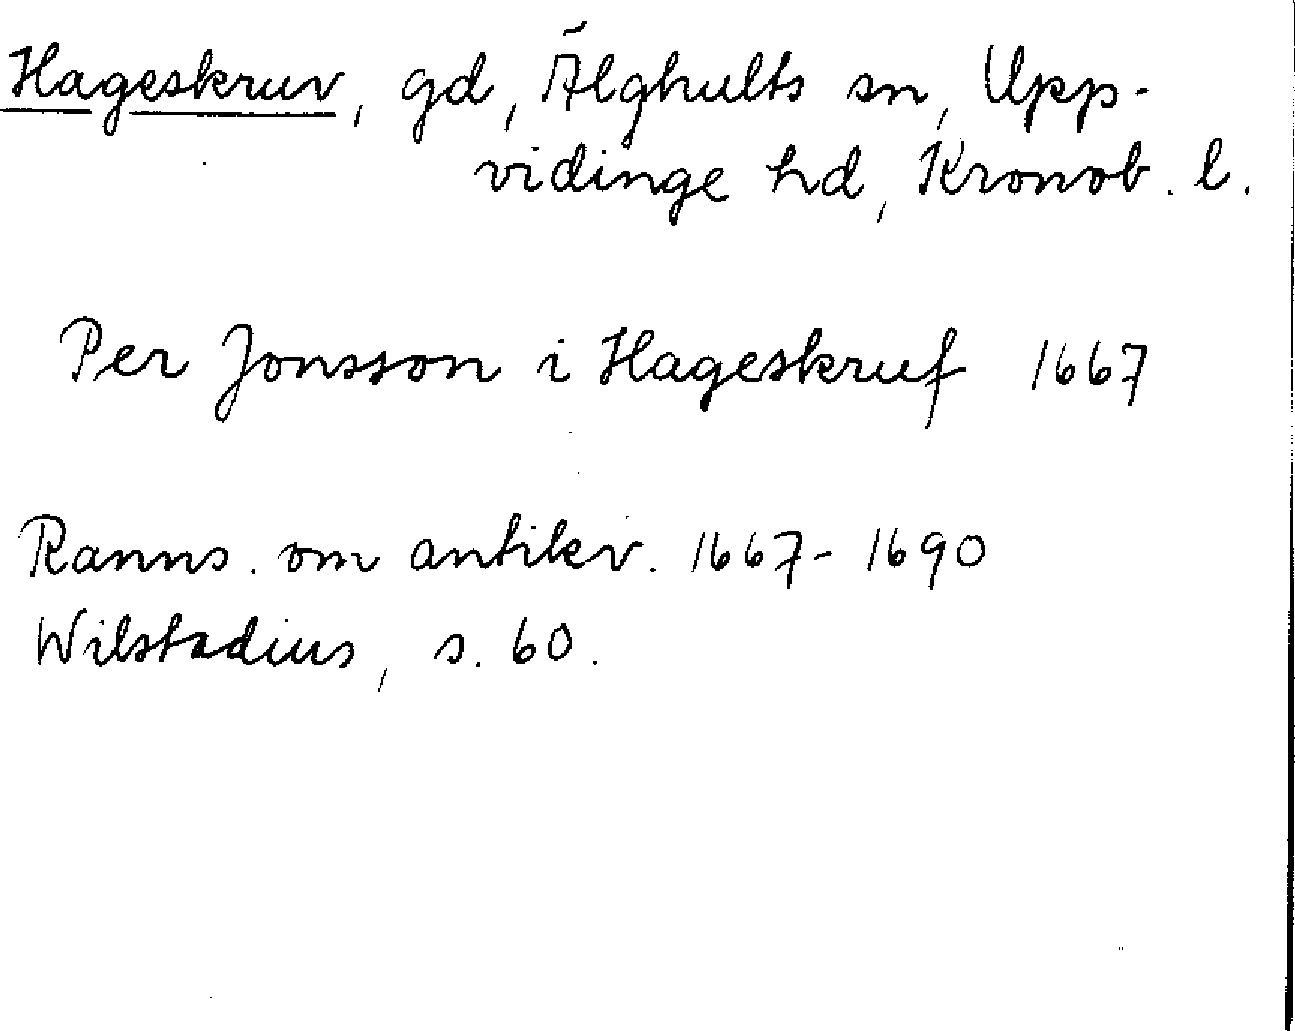 Hageskruv, gd, Älghults sn, Upp-
vidinge hd, Kronob. l.
Per Jonsson i Hageskruf 1667
Ranns. om antikv. 1667-1690
Wilstadius, s. 60.